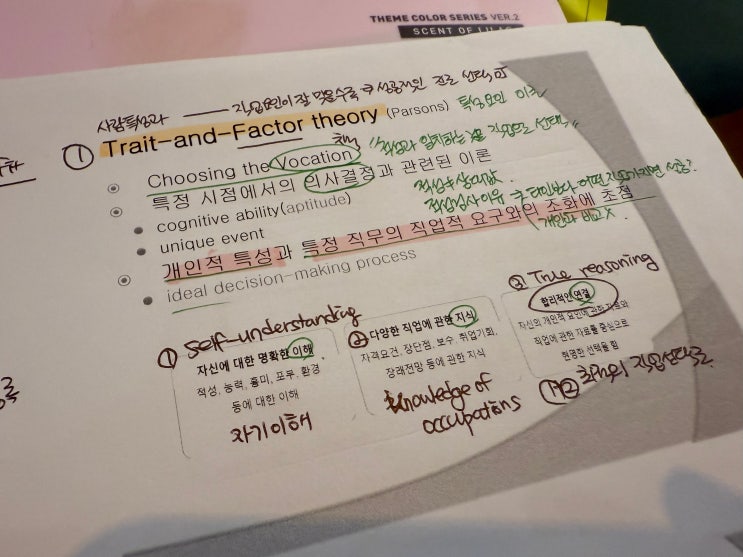 THEME COLOR SERIES VER.2
SCENT OF
사람특성과 직업요인이 잘 맞을수록 성공적인 진로 선택
① Trait-and-Factor theory (Parsons) 특성요인 이론
Choosing the Vocation "적성과 일치하는 직업으로 선택"
특정 시점에서의 의사결정과 관련된 이론
cognitive ability(aptitude)
적성검사이유
unique event
개인과 비교 X
개인적 특성과 특정 직무의 직업적 요구와의 조화에 초점
ideal decision-making process
① self-understanding
자신에 대한 명확한 이해
적성, 능력, 흥미, 포부, 환경
등에 대한 이해
자기이해
② 다양한 직업에 관한 지식
자격요건, 장단점, 보수, 취업기회,
장래전망 등에 관한 지식
knowledge of
occupations
③ True reasoning
합리적인 연결
자신의 개인적 요인에 관한 자료와
직업에 관한 자료를 중심으로
현명한 선택을 함
최적의 직업선택